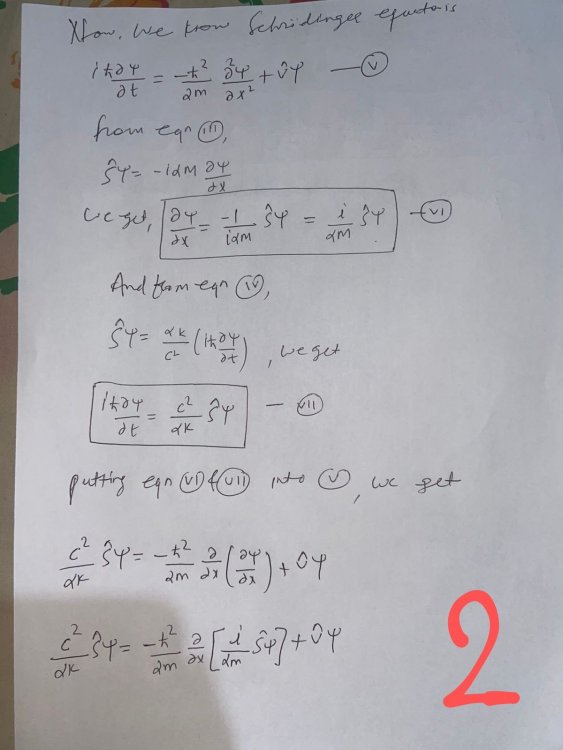 Now, we know Schridinger equation is
iℏ∂ψ/∂t = -ℏ²/2m ∂²ψ/∂x² + V̂ψ — (V)
from eqn (III),
ŜΨ = -iαM ∂ψ/∂x
we get, ∂ψ/∂x = -1/iαM Ŝψ = i/αM Ŝψ — (VI)
And from eqn (IV),
Ŝψ = αK/c² (iℏ∂ψ/∂t), we get
iℏ∂ψ/∂t = c²/αK Ŝψ — (VII)
putting eqn (VI) & (VII) into (V), we get
c²/αK Ŝψ = -ℏ²/2m ∂/∂x (∂ψ/∂x) + V̂ψ
c²/αK Ŝψ = -ℏ²/2m ∂/∂x [i/αm Ŝψ] + V̂ψ
2